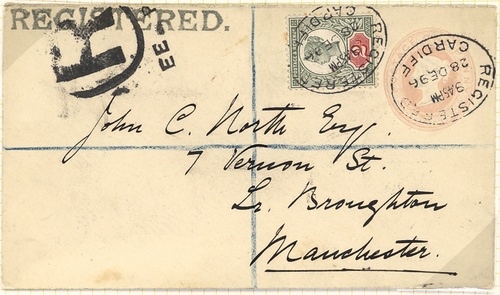 REGISTERED.
R
FEE
REGISTERED
CARDIFF
REGISTERED
9.45PM
28 DE 96
CARDIFF
John C. North Esq.
7 Vernon St.
Lr. Broughton
Manchester.